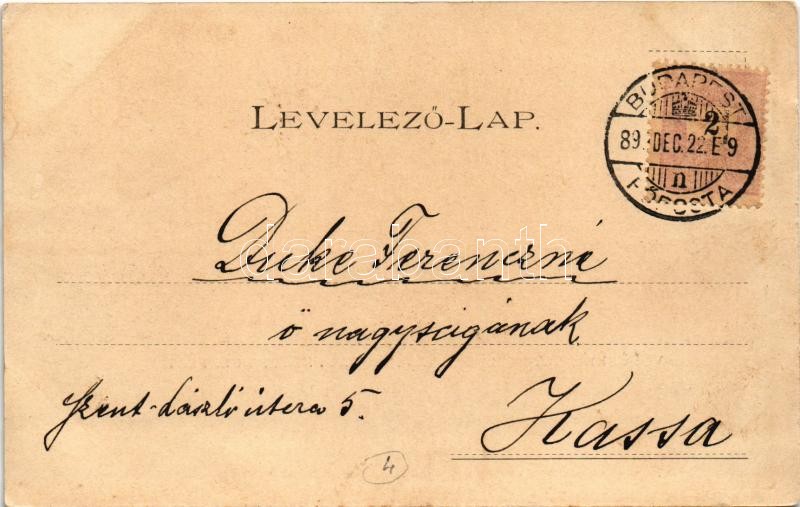 LEVELEZŐ-LAP.
BUDAPEST
2
89. DEC. 22. E 9
n
FŐPOSTA
Duke Ferenczné
ő nagyscigának
Szent-László utcza 5.
Kassa
4
darabanth